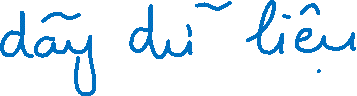 dãy dữ liệu